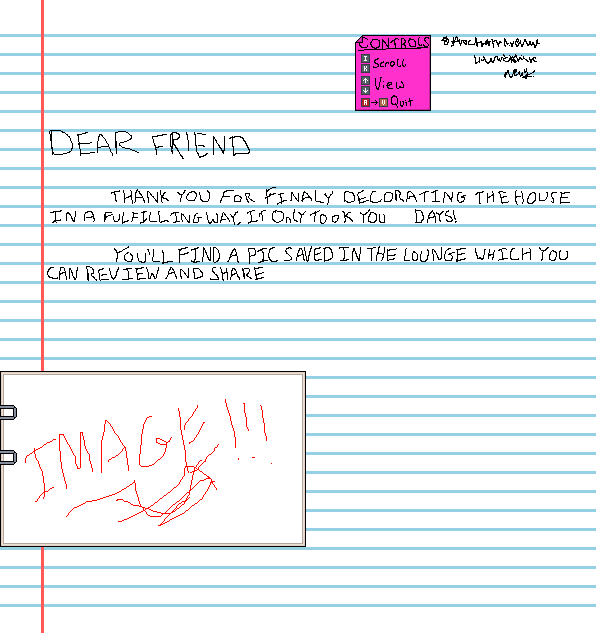 CONTROLS
I
K Scroll
↑
↓ View
R → U Quit
DEAR FRIEND
THANK YOU FOR FINALY DECORATING THE HOUSE
IN A FULFILLING WAY, IT ONLY TOOK YOU DAYS!
YOU'LL FIND A PIC SAVED IN THE LOUNGE WHICH YOU
CAN REVIEW AND SHARE
IMAGE!!!